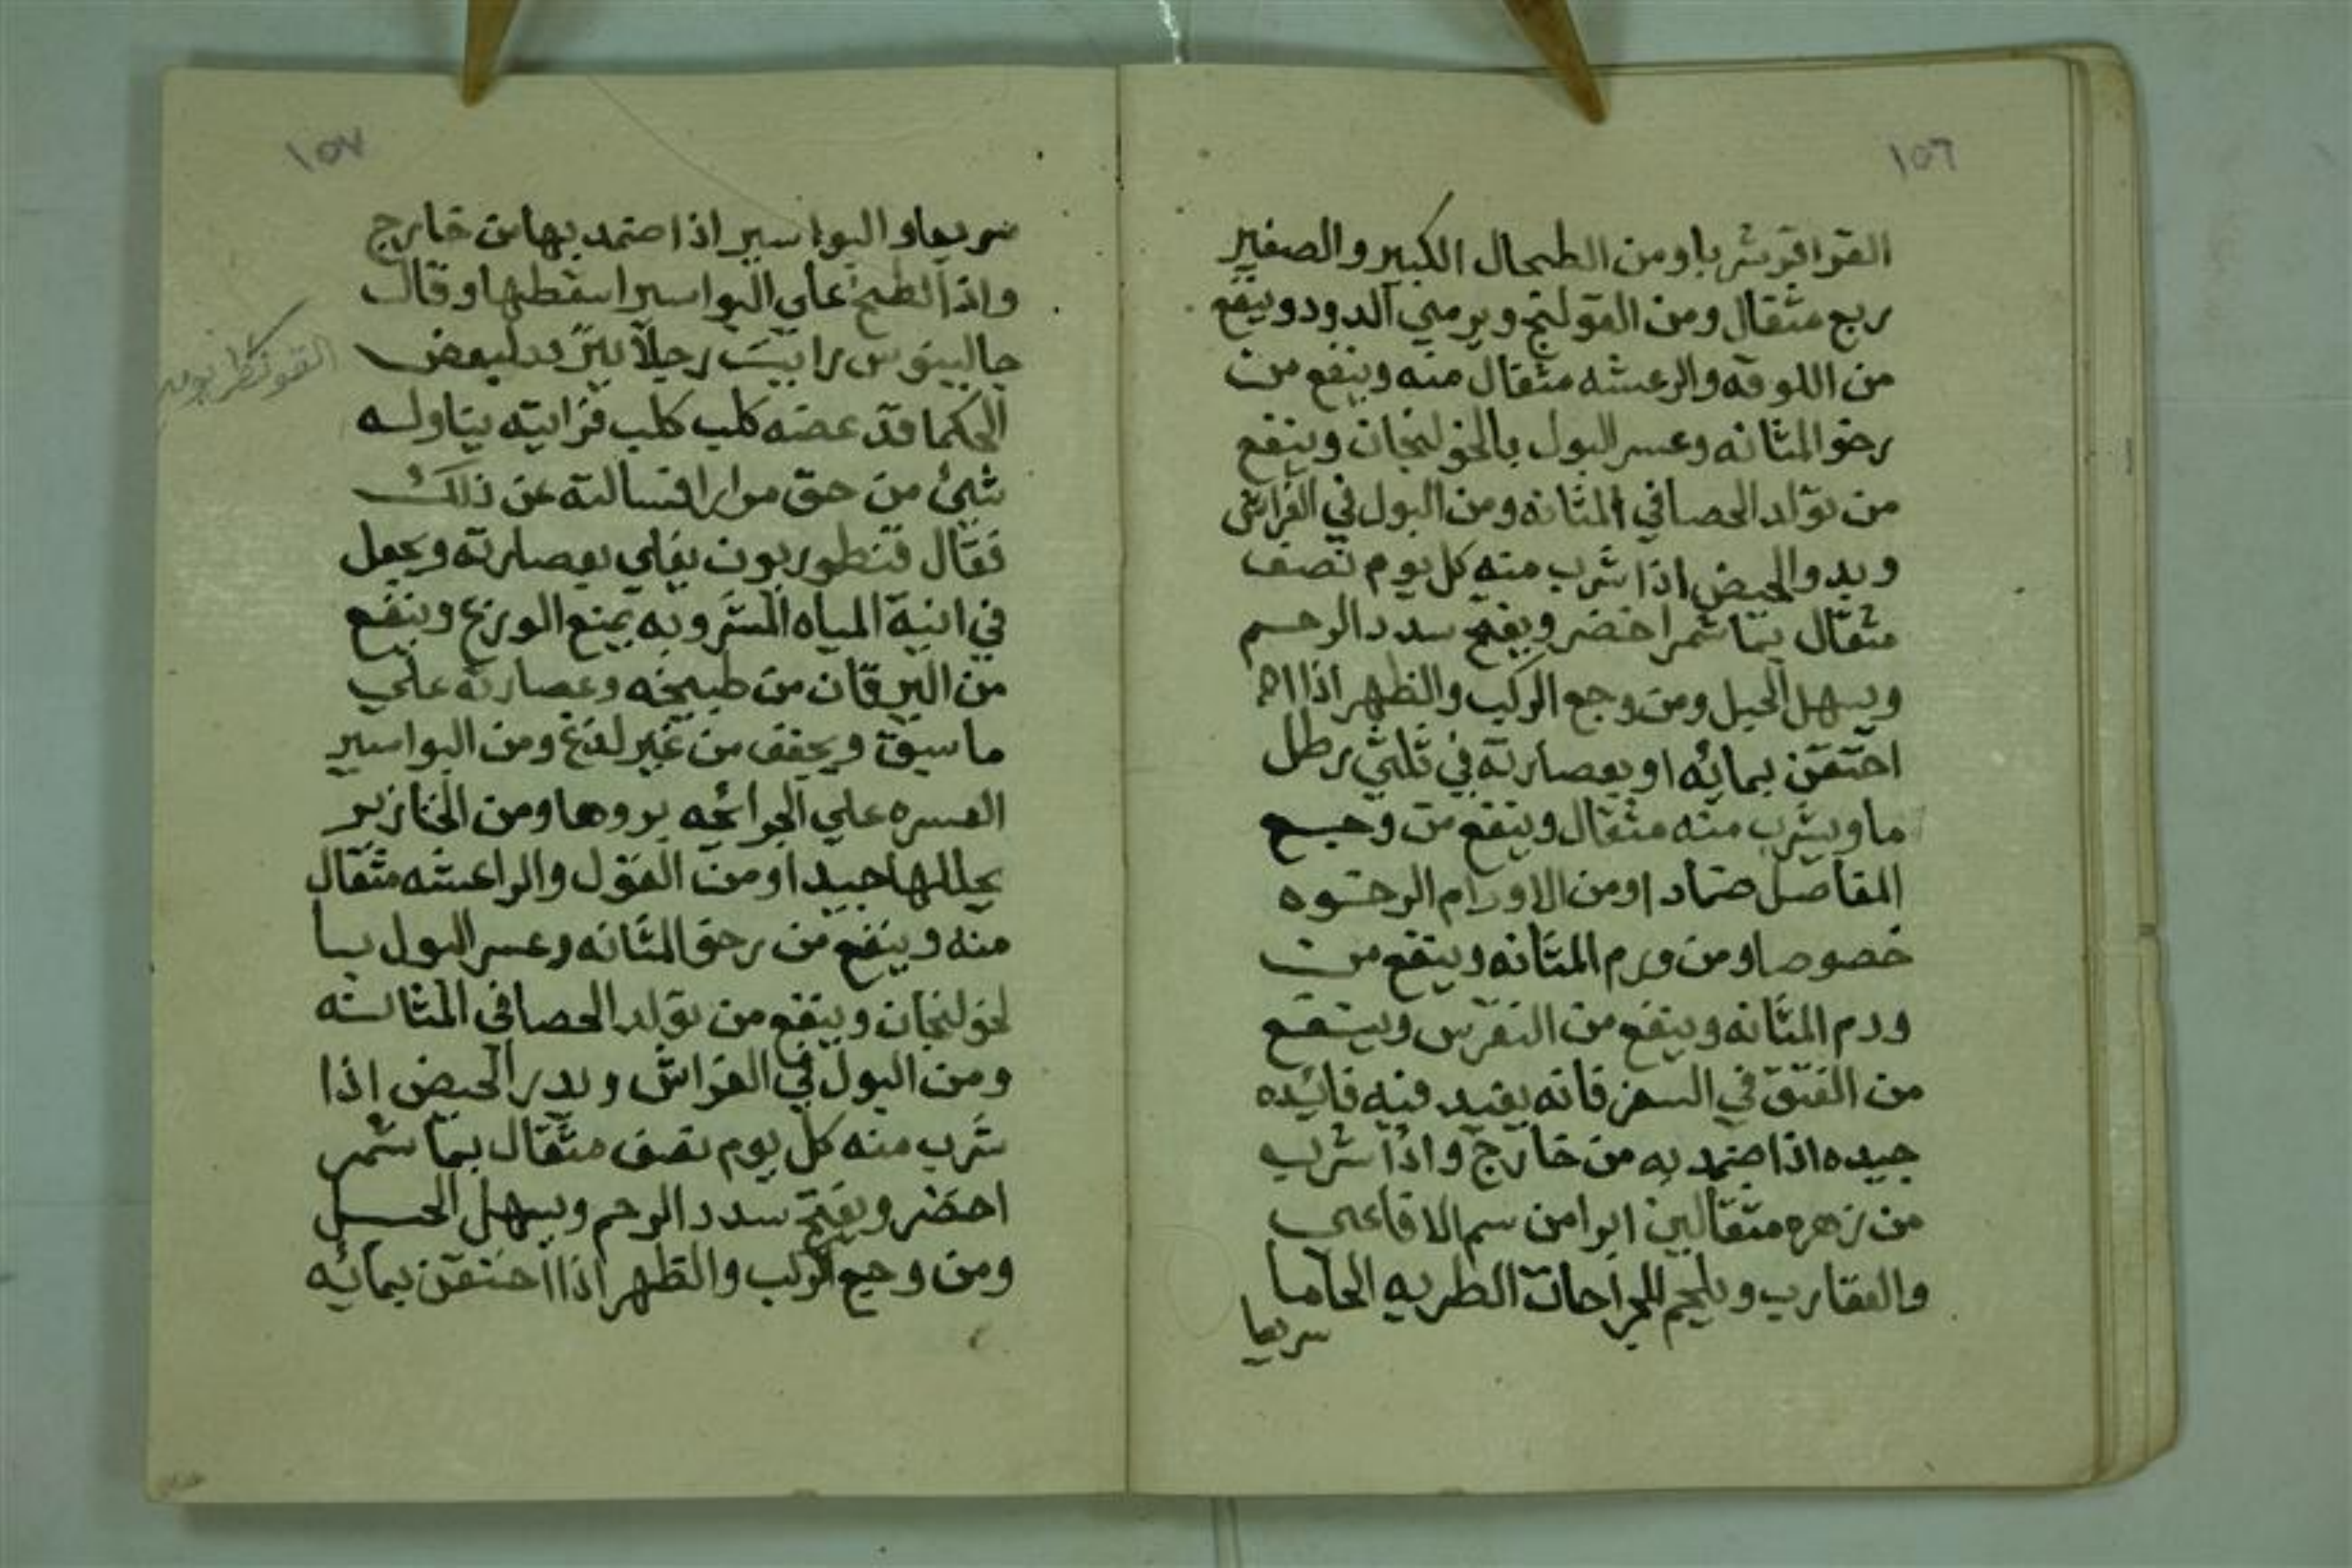 ١٥٦
القواقر شربا ومن الطحال الكبير والصغير
ربع مثقال ومن القولنج ويرمي الدود وينفع
من اللوقه والرعشه مثقال منه وينفع من
رخو المثانه وعسر البول بالخولنجان وينفع
من تولد الحصا في المثانه ومن البول في الفراش
ويدر الحيض اذا شرب منه كل يوم نصف
مثقال بما شمر اخضر ويفتح سدد الرحم
ويسهل الحبل ومن وجع الركب والظهر اذا
احتقن بمائه او بعصارته في ثلثي رطل
ما ويشرب منه مثقال وينفع من وجع
المفاصل ضمادا ومن الاورام الرخوه
خصوصا ومن ورم المثانه وينفع من
ورم المثانه وينفع من النقرس وينفع
من الفتق في فانه يفيد فيه فائيده
جيده اذا ضمد به من خارج واذا شرب
من زهره مثقالين ابرا من سم الافاعي
والعقارب ويلحم للجراحات الطريه الحاما
سريعا
١٥٧
سريعا والبواسير اذا ضمد بها من خارج
واذا لطخ علي البواسير اسقطها وقال
جالينوس رايت رجلا لبعض
الحكما قد عضه كلب كلب فرايته يناوله
شئ من حق مرارا فسالته عن ذلك
فقال قنطوريون يغلي بعصارته ويجعل
في انية المياه المشروبه يمنع الوزغ وينفع
من اليرقان من طبيخه وعصارته علي
ما سبق ويجفف من غير لذع ومن البواسير
العسره علي الجرائحه بروها ومن الخنازير
يحللها جيدا ومن القول والراعشه مثقال
منه وينفع من رخو المثانه وعسر البول با
لخولنجان وينفع من تولد الحصا في المثانه
ومن البول في الفراش ويدر الحيض اذا
شرب منه كل يوم نصف مثقال بما شمر
اخضر ويفتح سدد الرحم ويسهل الحبل
ومن وجع الركب والظهر اذا احتقن بمائه